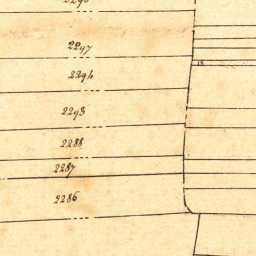 2297
2294
2293
2288
2287
2286